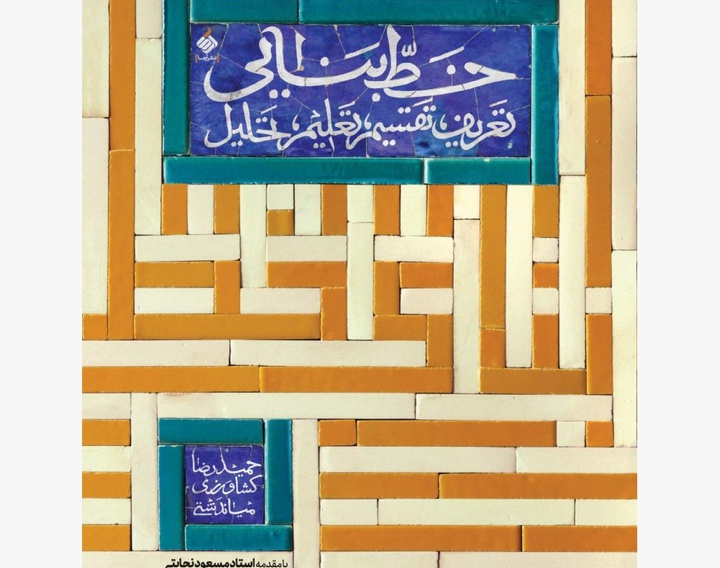 خط بنایی
تعریف، تقسیم، تعلیم، تحلیل
حمیدرضا
کشاورزی
میاندشتی
با مقدمه استاد مسعود نجابتی